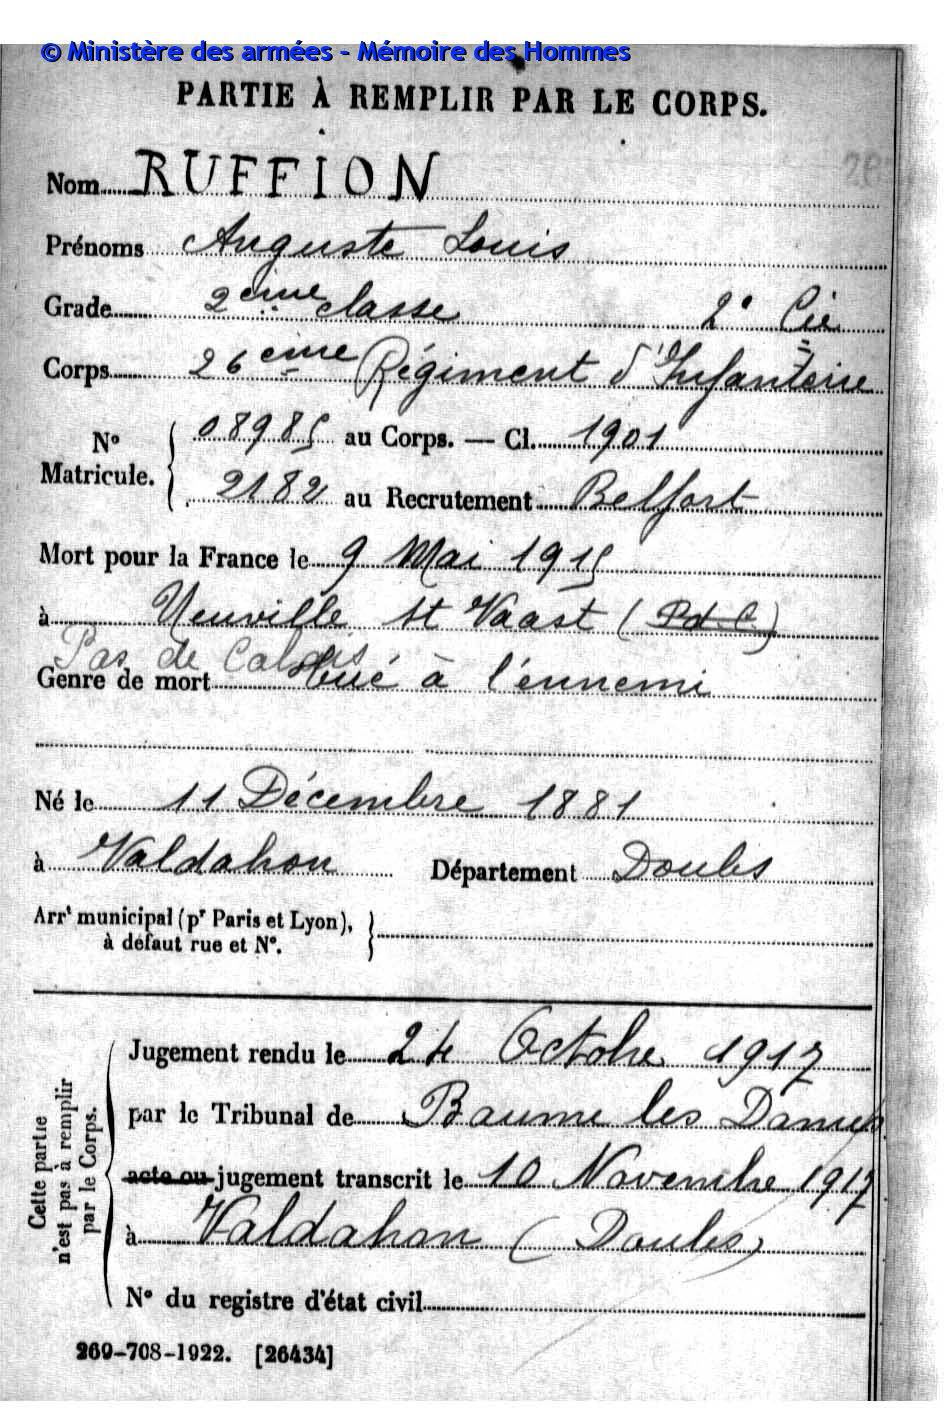 © Ministère des armées - Mémoire des Hommes
PARTIE À REMPLIR PAR LE CORPS.
Nom RUFFION
Prénoms Auguste Louis
Grade 2ème classe 2e Cie
Corps 26ème Régiment d'Infanterie
N° Matricule. 08985 au Corps. — Cl. 1901
2182 au Recrutement Belfort
Mort pour la France le 9 Mai 1915
à Neuville St Vaast (P.d.C.)
Pas de Calais
Genre de mort tué à l'ennemi
Né le 11 Décembre 1881
à Valdahon Département Doubs
Arrt municipal (pr Paris et Lyon),
à défaut rue et N°.
Cette partie
n'est pas à remplir
par le Corps.
Jugement rendu le 24 Octobre 1917
par le Tribunal de Baume les Dames
acte ou jugement transcrit le 10 Novembre 1917
à Valdahon (Doubs)
N° du registre d'état civil
269-708-1922. [26434]